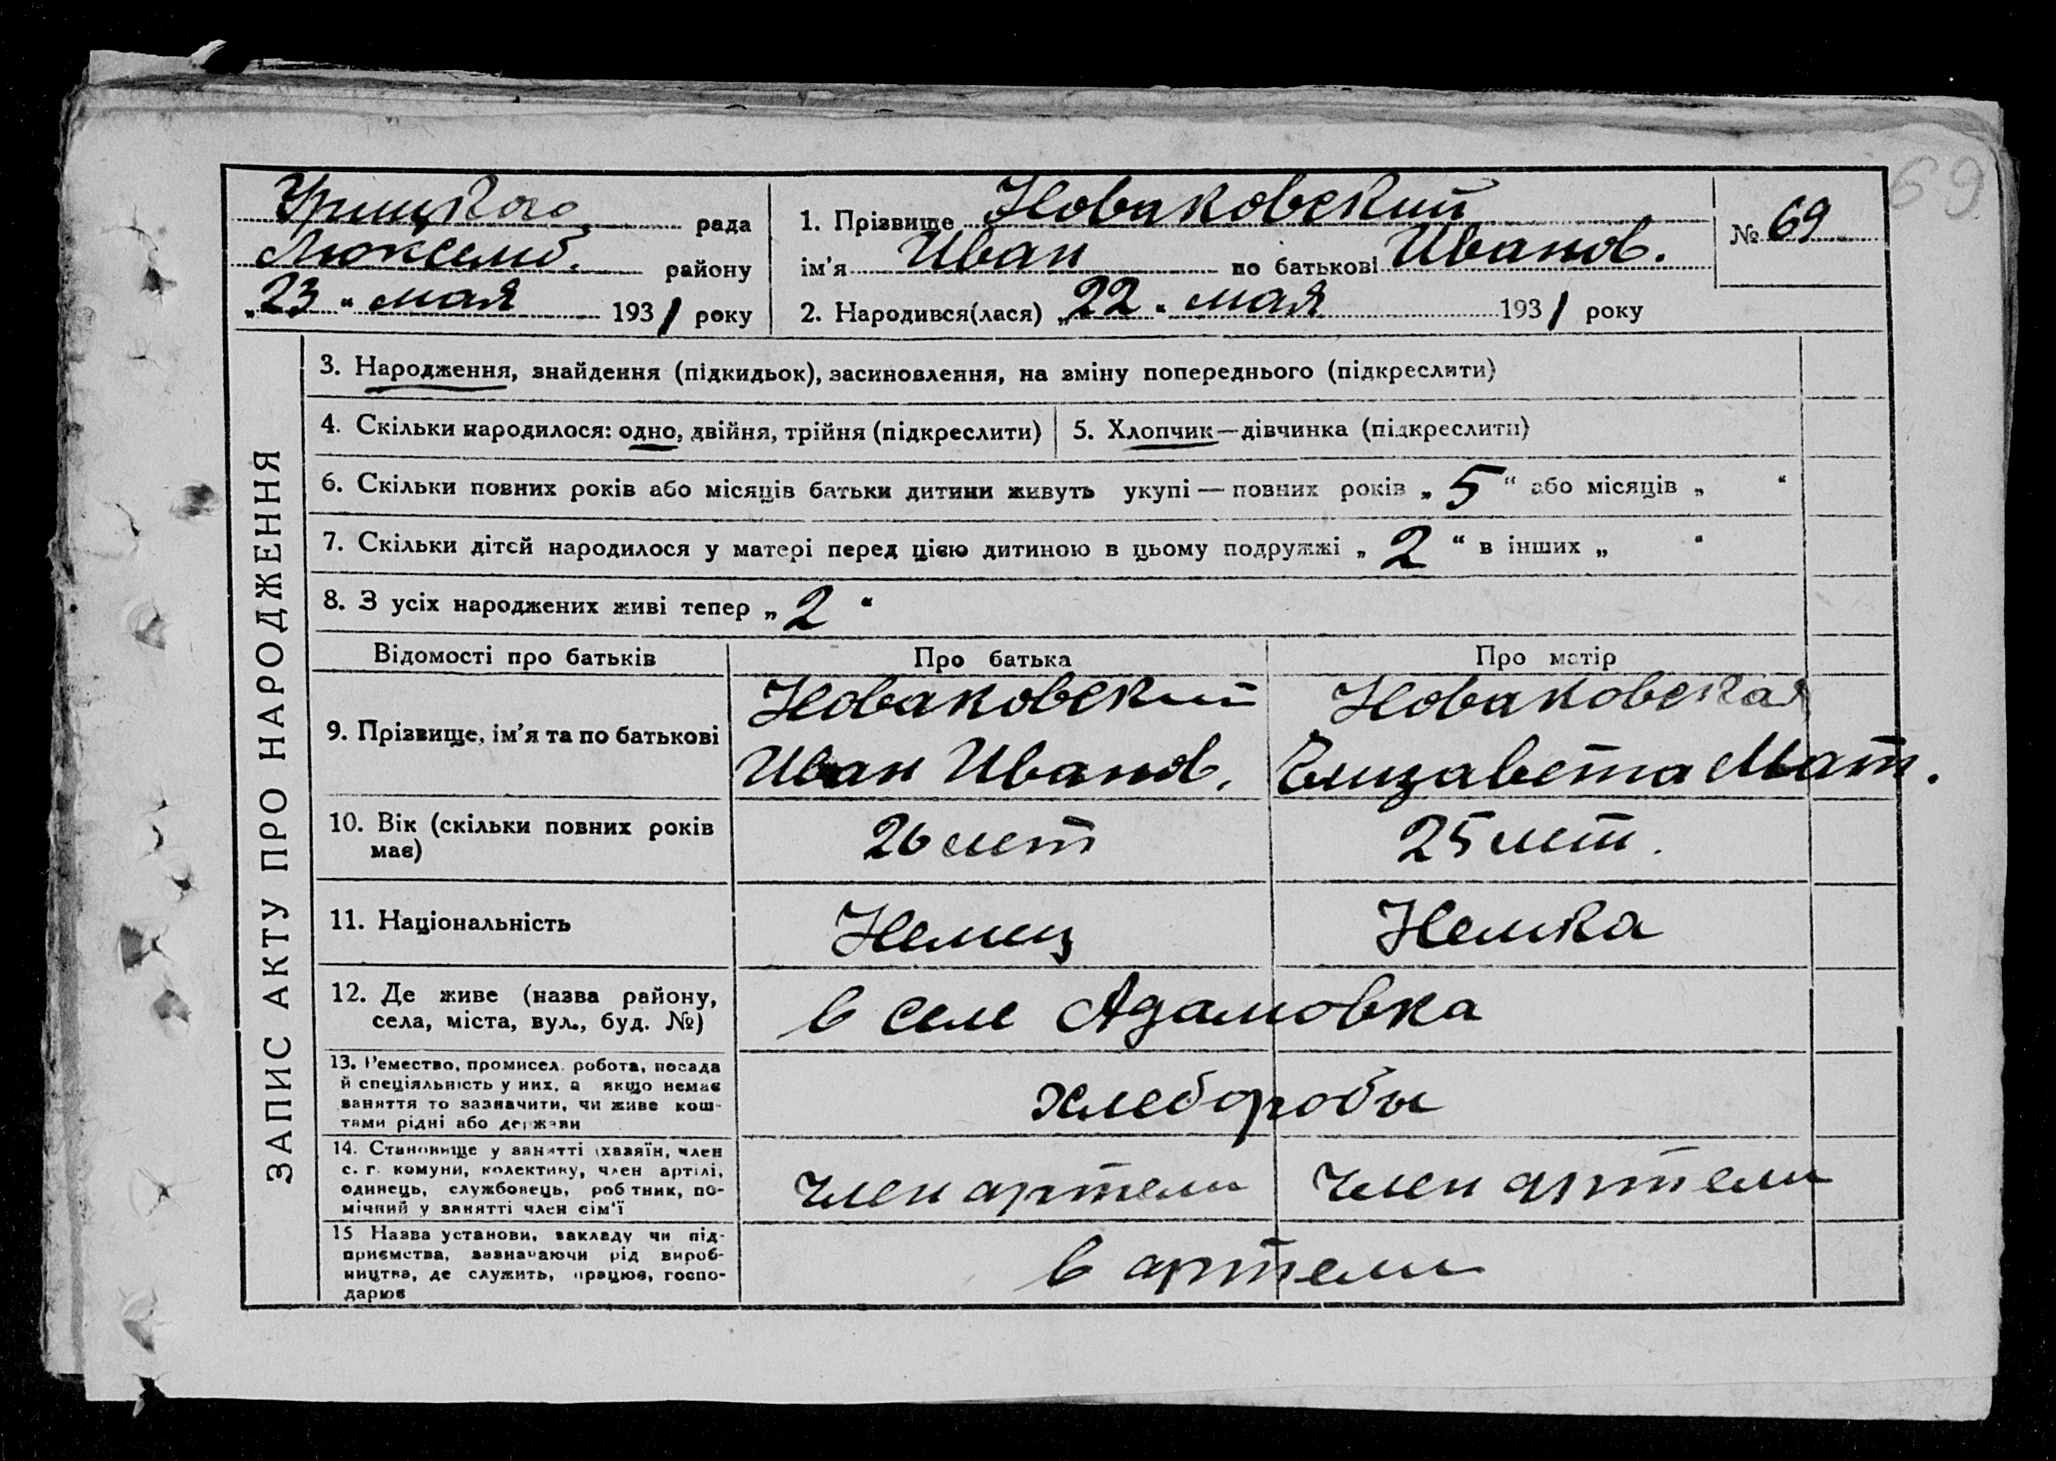 69
Урицкого рада
Люксемб. району
„23“ мая 1931 року
1. Прізвище Новаковский
ім’я Иван по батькові Иванов.
2. Народився(лася) „22“ мая 1931 року
№ 69
ЗАПИС АКТУ ПРО НАРОДЖЕННЯ
3. Народження, знайдення (підкидьок), засиновлення, на зміну попереднього (підкреслити)
4. Скільки народилося: одно, двійня, трійня (підкреслити)
5. Хлопчик—дівчинка (підкреслити)
6. Скільки повних років або місяців батьки дитини живуть укупі — повних років „5“ або місяців „ “
7. Скільки дітей народилося у матері перед цією дитиною в цьому подружжі „2“ в інших „ “
8. З усіх народжених живі тепер „2“
Відомості про батьків Про батька Про матір
9. Прізвище, ім’я та по батькові
Новаковский
Иван Иванов.
Новаковская
Елизавета Мат.
10. Вік (скільки повних років
має)
26 лет
25 лет.
11. Національність
Немец
Немка
12. Де живе (назва району,
села, міста, вул., буд. №)
в селе Адамовка
13. Ремество, промисел, робота, посада
й спеціяльність у них, а якщо немає
заняття то зазначити, чи живе кош-
тами рідні або держави
хлеборобы
14. Становище у занятті (хазяїн, член
с.-г. комуни, колективу, член артілі,
одинець, службовець, робітник, по-
мічний у занятті член сім’ї
член артели
член артели
15 Назва установи, закладу чи під-
приємства, зазначаючи рід вироб-
ництва, де служить, працює, госпо-
дарює
в артели